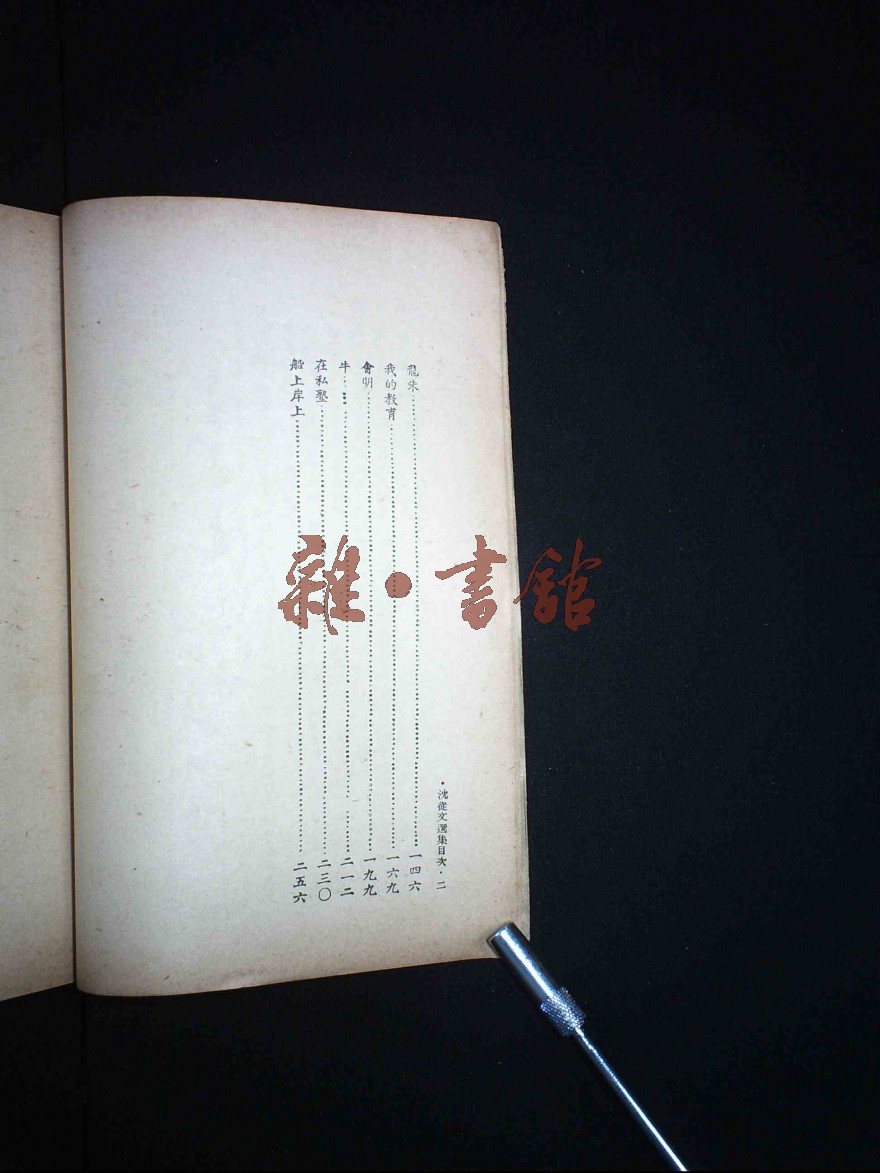 龍朱……一四六
我的教育……一六九
會明……一九九
牛……二一二
在私塾……二三〇
船上岸上……二五六
·沈從文選集目次·二
雜·書館